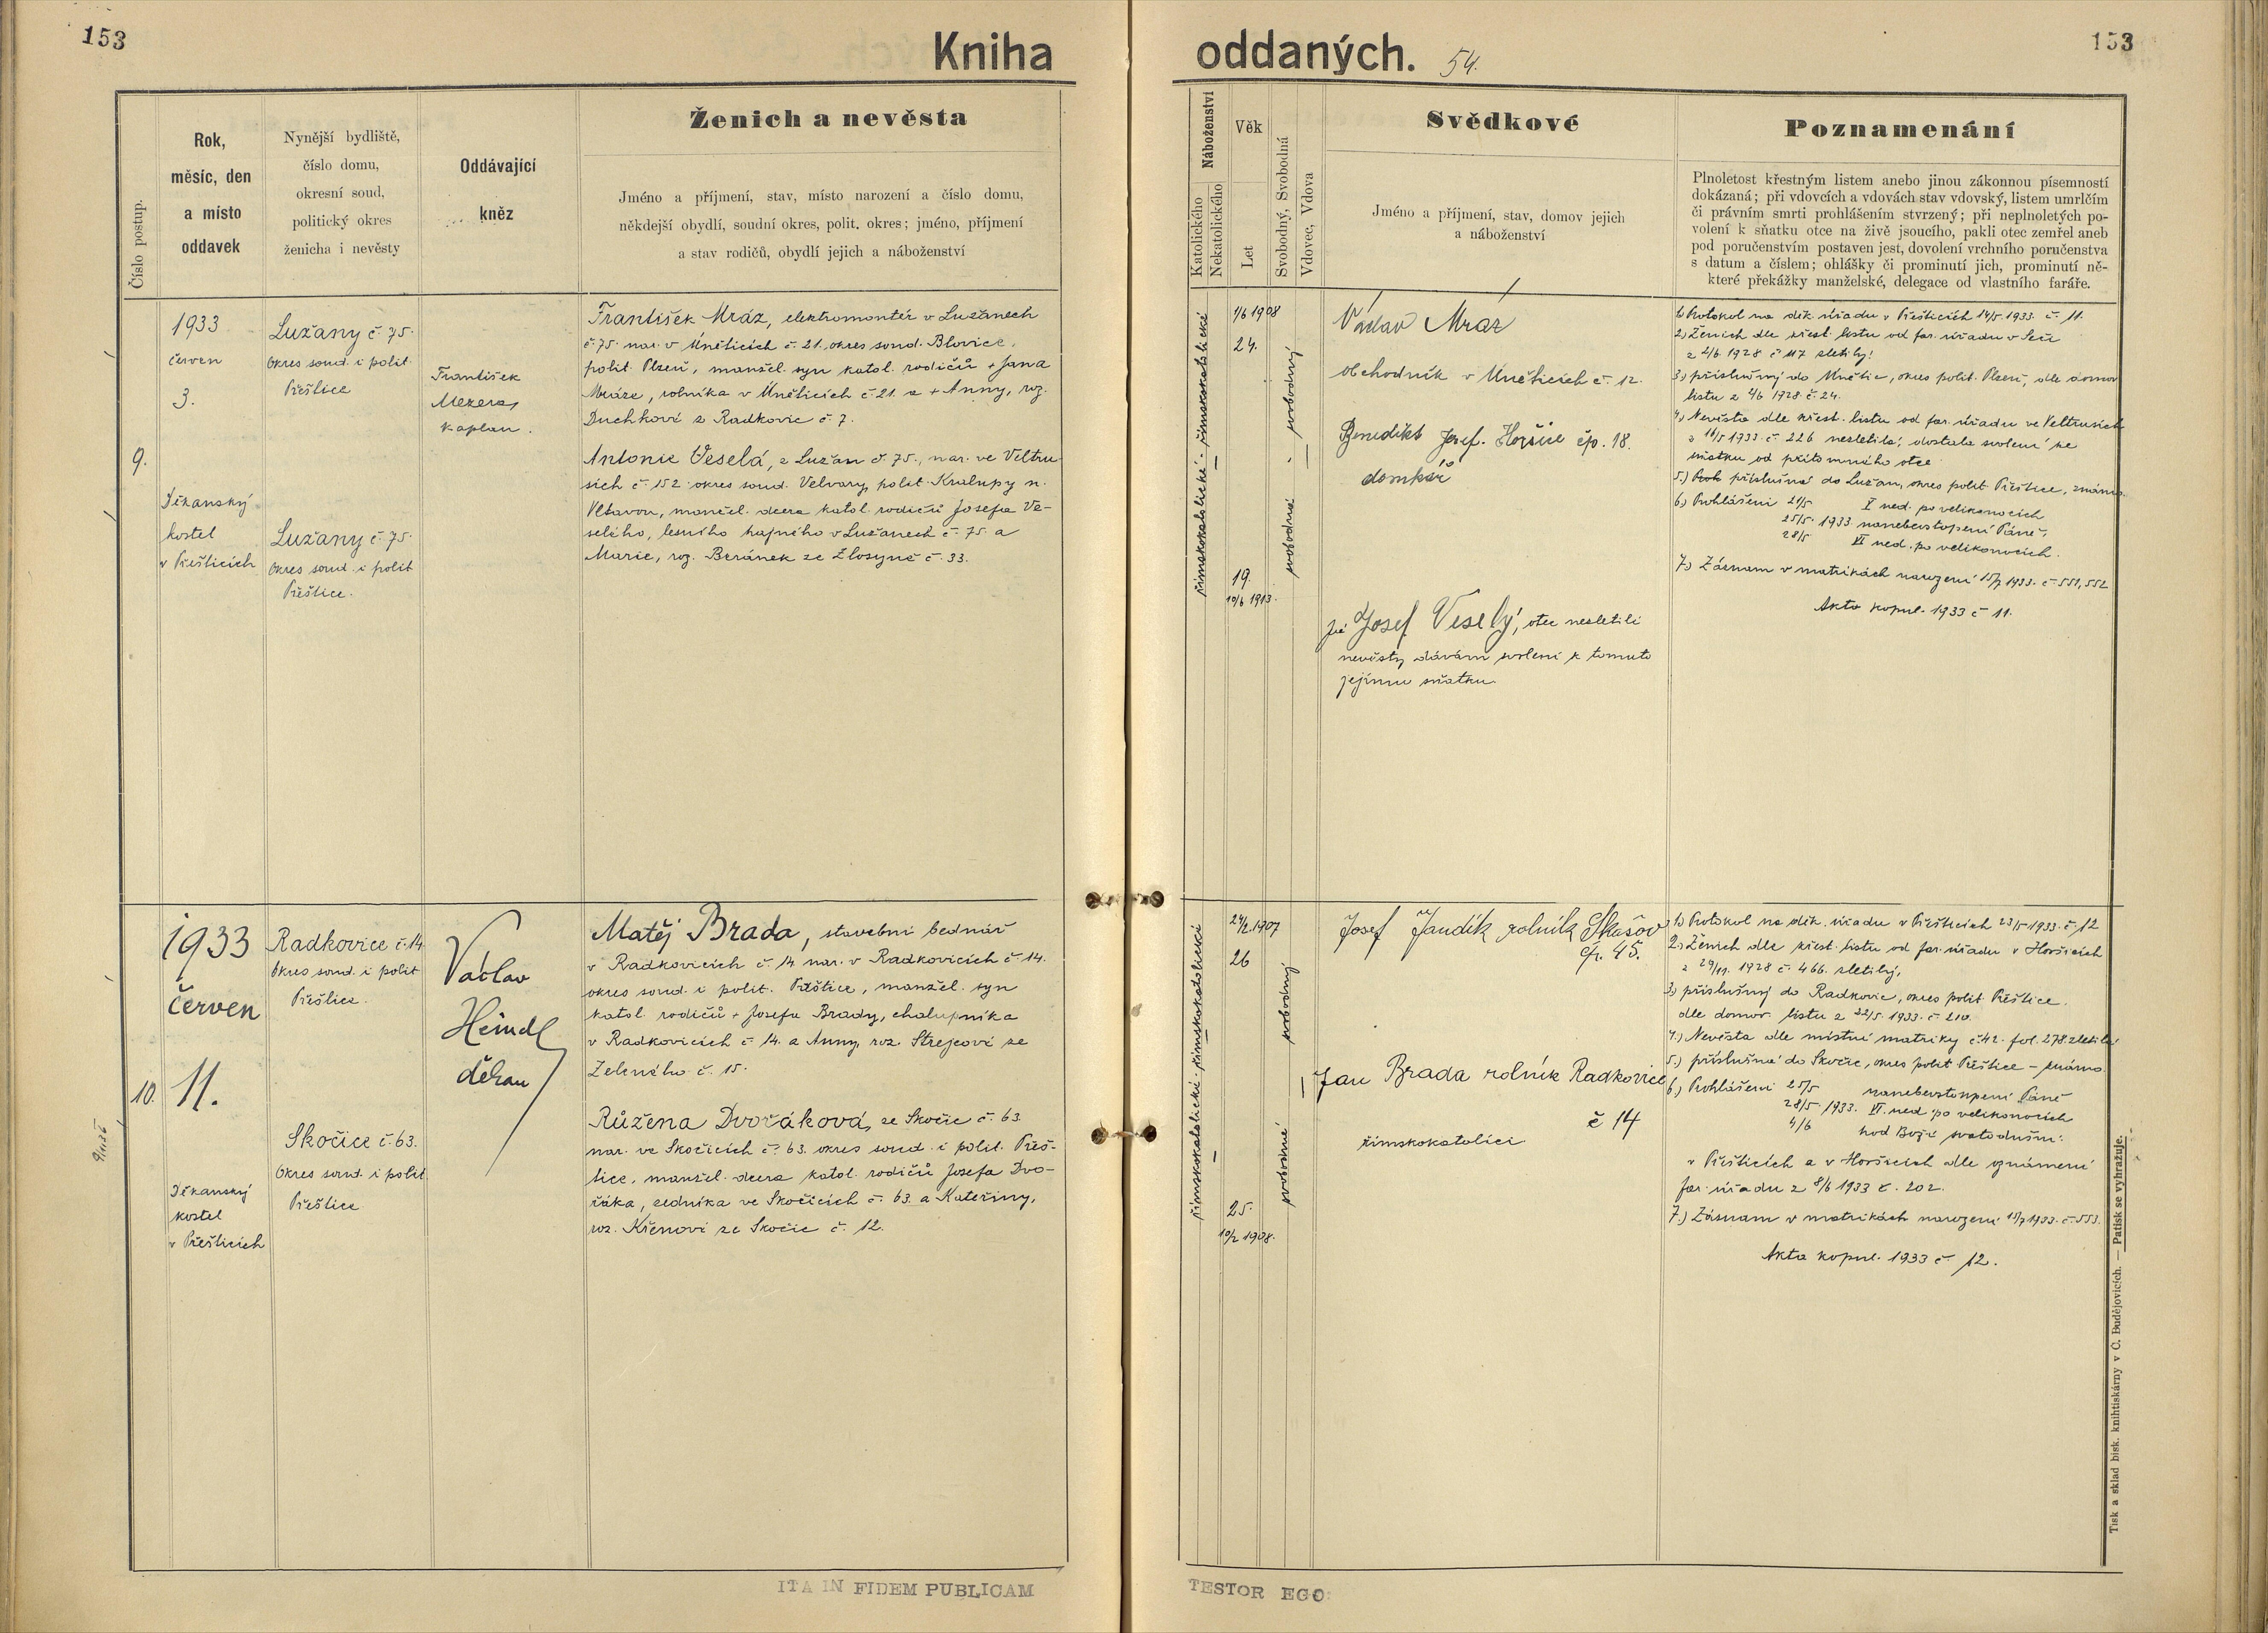 153
Kniha
oddaných.
54.
153
Číslo postup.
Rok,
měsíc, den
a místo
oddavek
Nynější bydliště,
číslo domu,
okresní soud,
politický okres
ženicha i nevěsty
Oddávající
kněz
Ženich a nevěsta
Jméno a příjmení, stav, místo narození a číslo domu,
někdejší obydlí, soudní okres, polit. okres; jméno, příjmení
a stav rodičů, obydlí jejich a náboženství
Náboženství
Katolického
Nekatolického
Věk
Let
Svobodný, Svobodná
Vdovec, Vdova
Svědkové
Jméno a příjmení, stav, domov jejich
a náboženství
Poznamenání
Plnoletost křestným listem anebo jinou zákonnou písemností
dokázaná; při vdovcích a vdovách stav vdovský, listem umrlčím
či právním smrti prohlášením stvrzený; při neplnoletých po-
volení k sňatku otce na živě jsoucího, pakli otec zemřel aneb
pod poručenstvím postaven jest, dovolení vrchního poručenstva
s datum a číslem; ohlášky či prominutí jich, prominutí ně-
které překážky manželské, delegace od vlastního faráře.
9.
1933
červen
3.
Děkanský
kostel
v Přešticích
Lužany č. 75.
Okres soud. i polit
Přeštice
Lužany č. 75.
Okres soud. i polit
Přeštice.
František
Mezera,
kaplan.
František Mráz, elektromontér v Lužanech
č. 75. nar. v Úněticích č. 21. okres soud. Blovice,
polit. Plzeň, manžel. syn katol. rodičů + Jana
Mráze, rolníka v Úněticích č. 21. a + Anny, roz.
Duchkové z Radkovic č. 7.
Antonie Veselá, z Lužan č. 75., nar. ve Veltru-
sich č. 152 okres soud. Velvary, polit. Kralupy n.
Vltavou, manžel. dcera katol. rodičů Josefa Ve-
selého, lesního hajného v Lužanech č. 75. a
Marie, roz. Beránek ze Zlosyně č. 33.
římskokatolické - římskokatolické
1/6 1908
24.
19.
10/6 1913.
svobodná - svobodný
Václav Mráz
obchodník v Úněticích č. 12.
Benedikt Josef. Horšice čp. 18.
domkář
Já Josef Veselý, otec nezletilé
nevěsty dávám svolení k tomuto
jejímu sňatku.
1.) Protokol na děk. úřadu v Přešticích 14/5. 1933. č. 11.
2.) Ženich dle křest. listu od far. úřadu v Seči
z 2/6. 1928 č. 117 zletilý.
3.) příslušný do Únětic, okres polit. Plzeň, dle domov
listu z 4/6 1928. č. 24.
4.) Nevěsta dle křest. listu od far. úřadu ve Veltrusích
z 16/5 1933. č. 226 nezletilá, dostala svolení ke
sňatku od přítomného otce
5.) příslušná do Lužan, okres polit Přeštice, známa.
6.) Prohlášení 21/5 V ned. po velikonocích
25/5. 1933. nanebevstoupení Páně,
28/5 VI ned. po velikonocích.
7.) Záznam v matrikách narození 15/7 1933. č. 551, 552
Akta kopul. 1933 č 11.
10.
1933
červen
11.
Děkanský
kostel
v Přešticích
Radkovice č. 14
Okres soud. i polit
Přeštice.
Skočice č. 63.
Okres soud. i polit
Přeštice
Václav
Heindl
děkan
Matěj Brada, stavební bednář
v Radkovicích č. 14. nar. v Radkovicích č. 14.
okres soud. i polit. Přeštice, manžel. syn
katol. rodičů + Josefa Brady, chalupníka
v Radkovicích č. 14. a Anny, roz. Strejcové ze
Zeleného č. 15.
Růžena Dvořáková, ze Skočic č. 63
nar. ve Skočicích č. 63. okres soud. i polit. Přeš-
tice, manžel. dcera katol. rodičů Josefa Dvo-
řáka, zedníka ve Skočicích č. 63. a Kateřiny,
roz. Křenové ze Skočic č. 12.
římskokatolické - římskokatolické
24/2. 1907
26
25.
10/2 1908.
svobodná svobodný
Josef Jandík rolník Skašov
čp. 45.
Jan Brada rolník Radkovice
č 14
římskokatolíci
1.) Protokol na děk. úřadu v Přešticích 23/5 1933. č. 12
2.) Ženich dle křest. listu od far. úřadu v Horšicích
z 29/11. 1928 č. 466. zletilý,
3.) příslušný do Radkovic, okres polit. Přeštice.
dle domov. listu z 22/5. 1933. č. 210.
4.) Nevěsta dle místní matriky č. 42. fol. 278. zletilá
5.) příslušná do Skočic, okres polit Přeštice - známa.
6.) Prohlášení 25/5 nanebevstoupení Páně
28/5. 1933. VI. ned. po velikonocích
4/6 hod Boží svatodušní.
v Přešticích a v Horšicích dle oznámení
far. úřadu z 8/6 1933 č. 202.
7.) Záznam v matrikách narození 15/7 1933. č. 553.
Akta kopul. 1933 č 12.
ITA IN FIDEM PUBLICAM
TESTOR EGO:
Tisk a sklad bisk. knihtiskárny v Č. Budějovicích. — Patisk se vyhražuje.